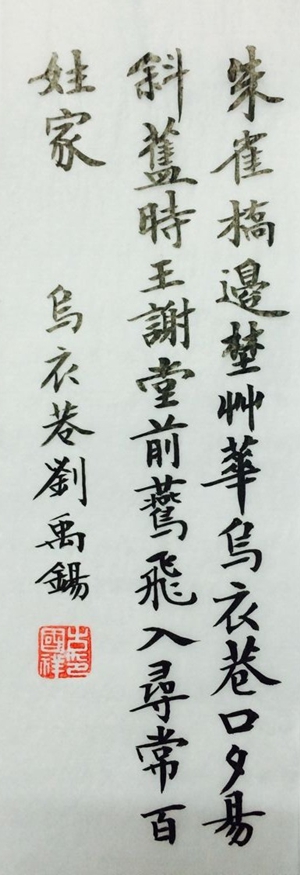 朱雀橋邊埜艸華烏衣巷口夕昜
斜舊時王謝堂前鷰飛入尋常百
姓家
烏衣巷劉禹錫